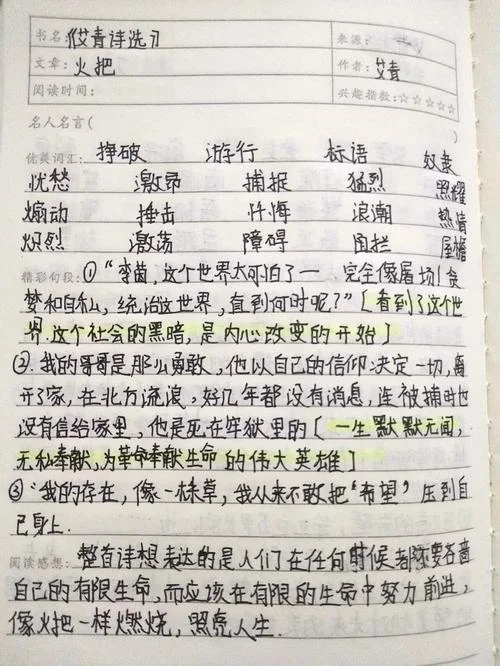 书名:《艾青诗选》 来源:
文章:火把 作者:艾青
阅读时间: 兴趣指数:☆☆☆☆☆
名人名言(
佳美词汇: 挣破 游行 标语 奴隶
忧愁 激昂 捕捉 猛烈 照耀
煽动 捶击 忏悔 浪潮 热情
炽烈 激荡 障碍 围拦 屋檐
精彩句段:①“李茵,这个世界太可怕了一 完全像屠场!贪
梦和自私,统治这世界,直到何时呢?”[看到了这个世
界.这个社会的黑暗,是内心改变的开始]
②.我的哥哥是那么勇敢,他以自己的信仰决定一切,离
开了家,在北方流浪,好几年都没有消息,连被捕时也
没有信给家里,他是死在牢狱里的[一生默默无闻,
无私奉献,为革命奉献生命的伟大英雄]
③“我的存在,像一株草,我从来不敢把“希望”压到自
己身上.
阅读感想: 整首诗想表达的是人们在任何时候都不要吝啬
自己的有限生命,而应该在有限的生命中努力前进,
像火把一样燃烧,照亮人生.